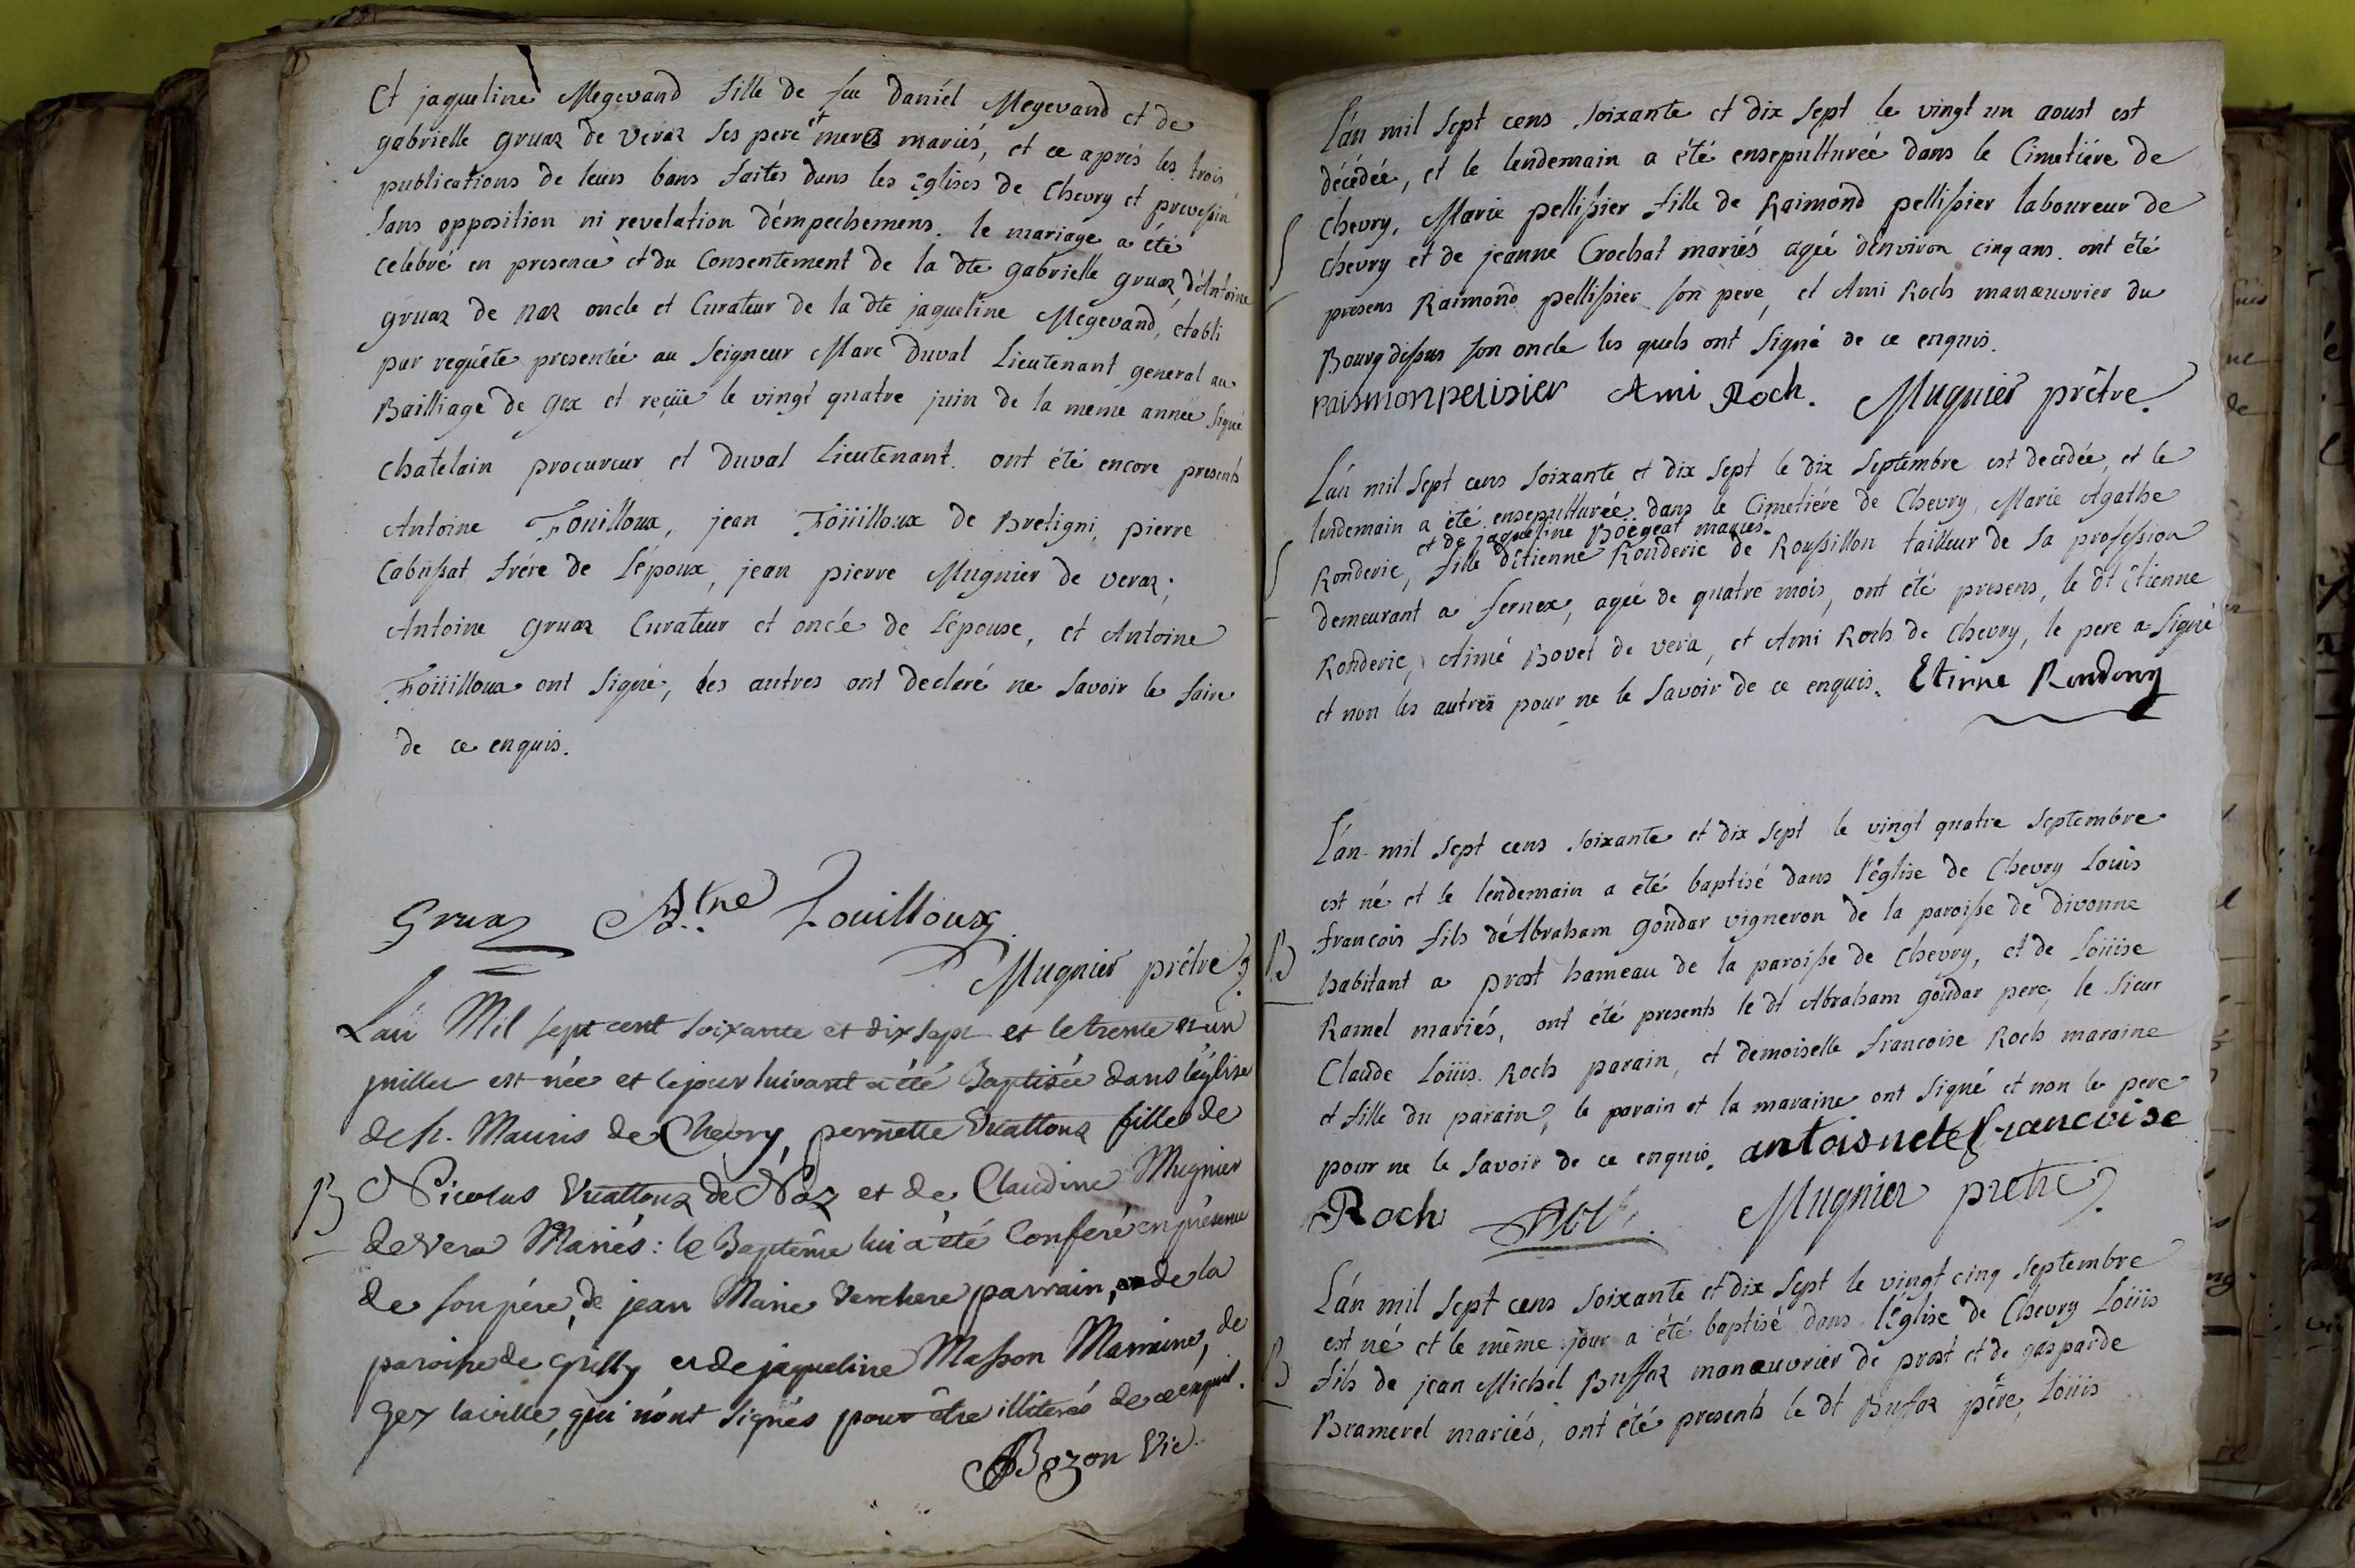 Et jaqueline Megevand fille de feu Daniel Megevand et de
gabrielle gruaz de veraz ses pere et meres mariés, et ce aprés les trois
publications de leurs bans faites dans les Eglises de Chevry et prevessin
sans opposition ni revelation d'émpechemens. le mariage a été
celébré en presence et du Consentement de la dte gabrielle gruaz, d'Antoine
gruaz de naz oncle et Curateur de la dte jaqueline Megevand, établi
par requéte presentée au seigneur Marc Duval Lieutenant general au
Bailliage de gex et reçüe le vingt quatre juin de la meme année signé
chatelain procureur et Duval Lieutenant. ont été encore presents
Antoine Fouilloux, jean Foüilloux de Bretigni, pierre
Cabussat frére de l'époux, jean pierre Mugnier de veraz,
Antoine gruaz Curateur et oncle de l'épouse, et Antoine
Foüilloux ont signé, les autres ont declaré ne savoir le faire
de ce enquis.
Gruaz Atne Fouilloux
Mugnier prêtre
L'an Mil sept cent soixante et dix sept et le trente et un
juillet est née et le jour suivant a été Baptisée dans l'église
de st. Mauris de Chevry, pernette Vuattoux fille de
B Nicolas Vuattoux de Naz et de Claudine Mugnier
de Vera Mariés: le Baptême lui a été Conferé en présence
de son pére, de jean Marie Verchere parrain, de la
paroisse de grilly et de jaqueline Masson Marraine, de
gex la ville, qui n'ont signés pour être illiterés de ce enquis.
Bozon Vic.
L'án mil sept cens soixante et dix sept le vingt un aoust est
décédée, et le lendemain a été ensepulturée dans le Cimetiére de
S Chevry, Marie pellissier fille de Raimond pellissier laboureur de
Chevry et de jeanne Crochat mariés agée d'environ cinq ans. ont été
presens Raimond pellissier son pere, et Ami Roch manœuvrier du
Bourg dessus son oncle les quels ont signé de ce enquis.
raismonpelisier Ami Roch. Mugnier prêtre.
L'án mil sept cens soixante et dix sept le dix septembre est decédée, et le
lendemain a été ensepulturée dans le Cimetiére de Chevry, Marie Agathe
et de jaqueline Boëgeat mariés.
S Ronderic, fille d'etienne Ronderic de Roussillon tailleur de sa profession
demeurant a fernex, agée de quatre mois, ont été presens, le dt Etienne
Ronderic, Aimé Bovet de vera, et Ami Roch de Chevry, le pere a signé
et non les autres pour ne le savoir de ce enquis. Etinne
L'án mil sept cens soixante et dix sept le vingt quatre septembre
est né et le lendemain a été baptisé dans l'église de Chevry Louis
francois fils d'Abraham goudar vigneron de la paroisse de divonne
B habitant a prost hameau de la paroisse de Chevry, et de Loüise
Ramel mariés, ont été presents le dt Abraham goudar pere, le sieur
Claude Loüis Roch parain, et demoiselle francoise Roch maraine
et fille du parain, le parain et la maraine ont signé et non le pere
pour ne le savoir de ce enquis. antoisnete francoise
Roch Mugnier pretre
L'án mil sept cens soixante et dix sept le vingt cinq septembre
est né et le même jour a été baptisé dans l'église de Chevry Loüis
B fils de jean Michel Buffaz manœuvrier de prost et de gasparde
Bramerel mariés, ont été presents le dt Buffaz pére, Loüis